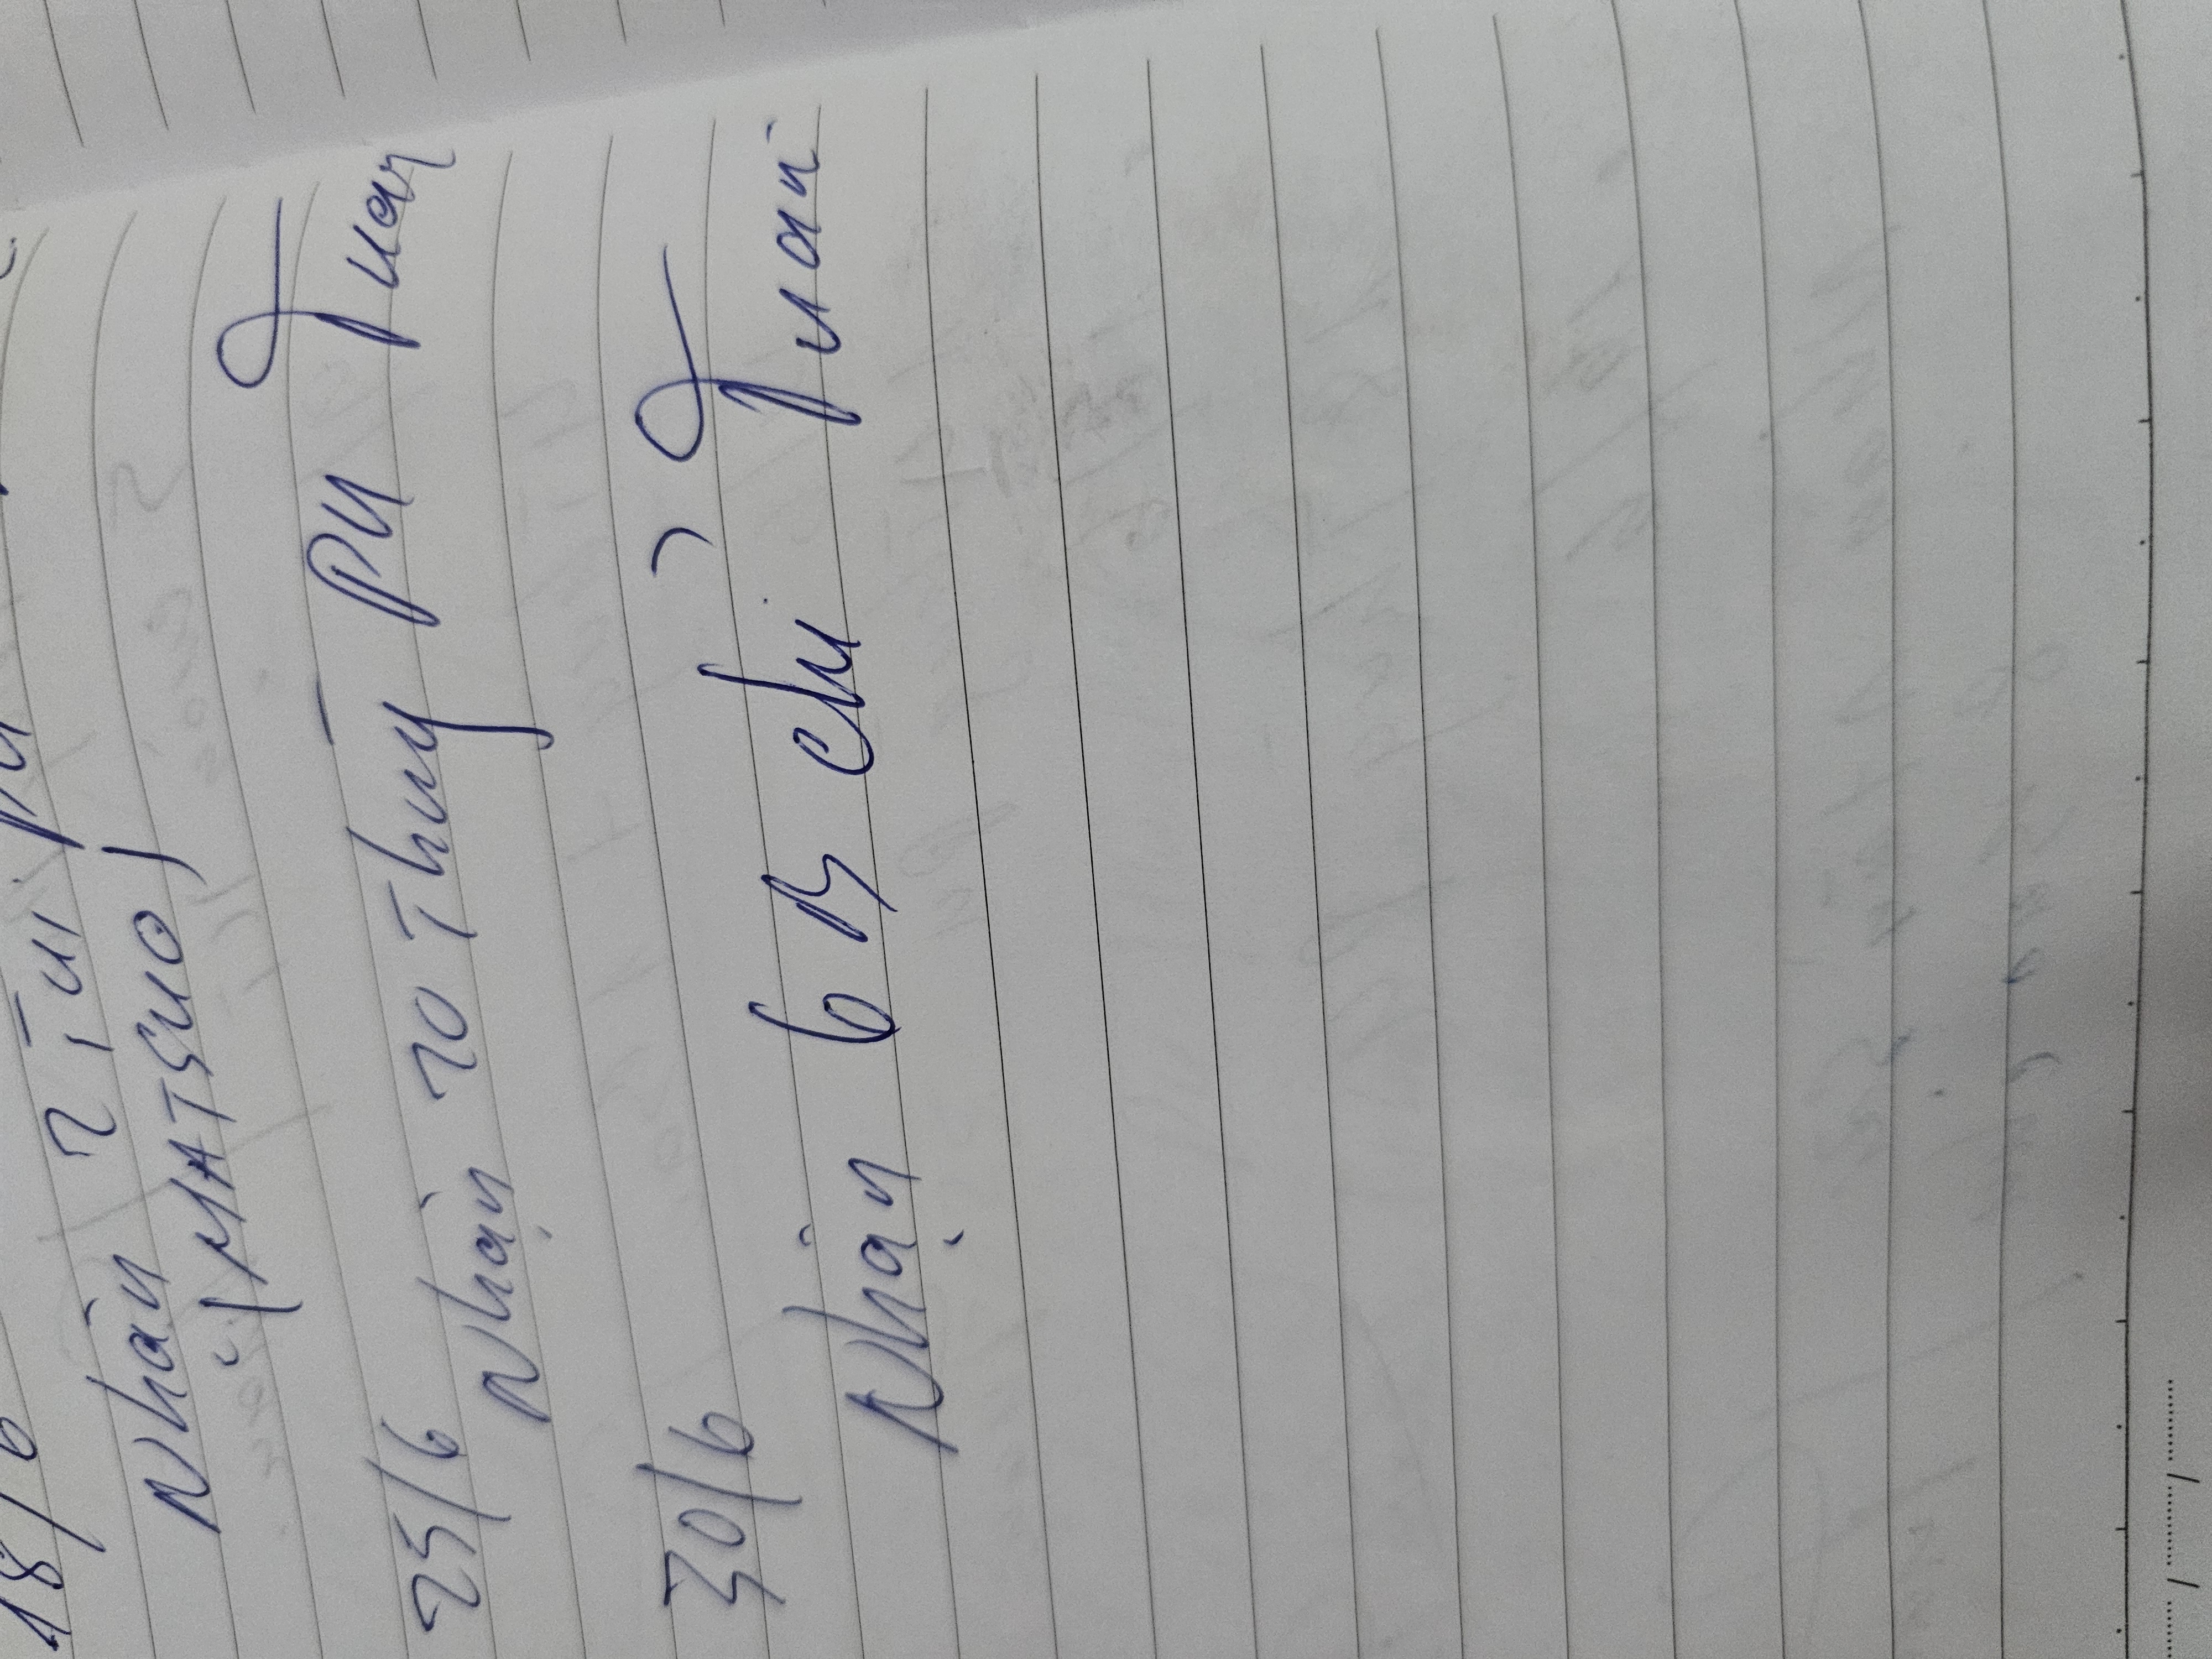 18/6
Nhận 2 Túi PU
(MATSUO)
25/6
Nhận 20 Thùng PU Tuan
30/6
Nhận 6 B chỉ Tuan